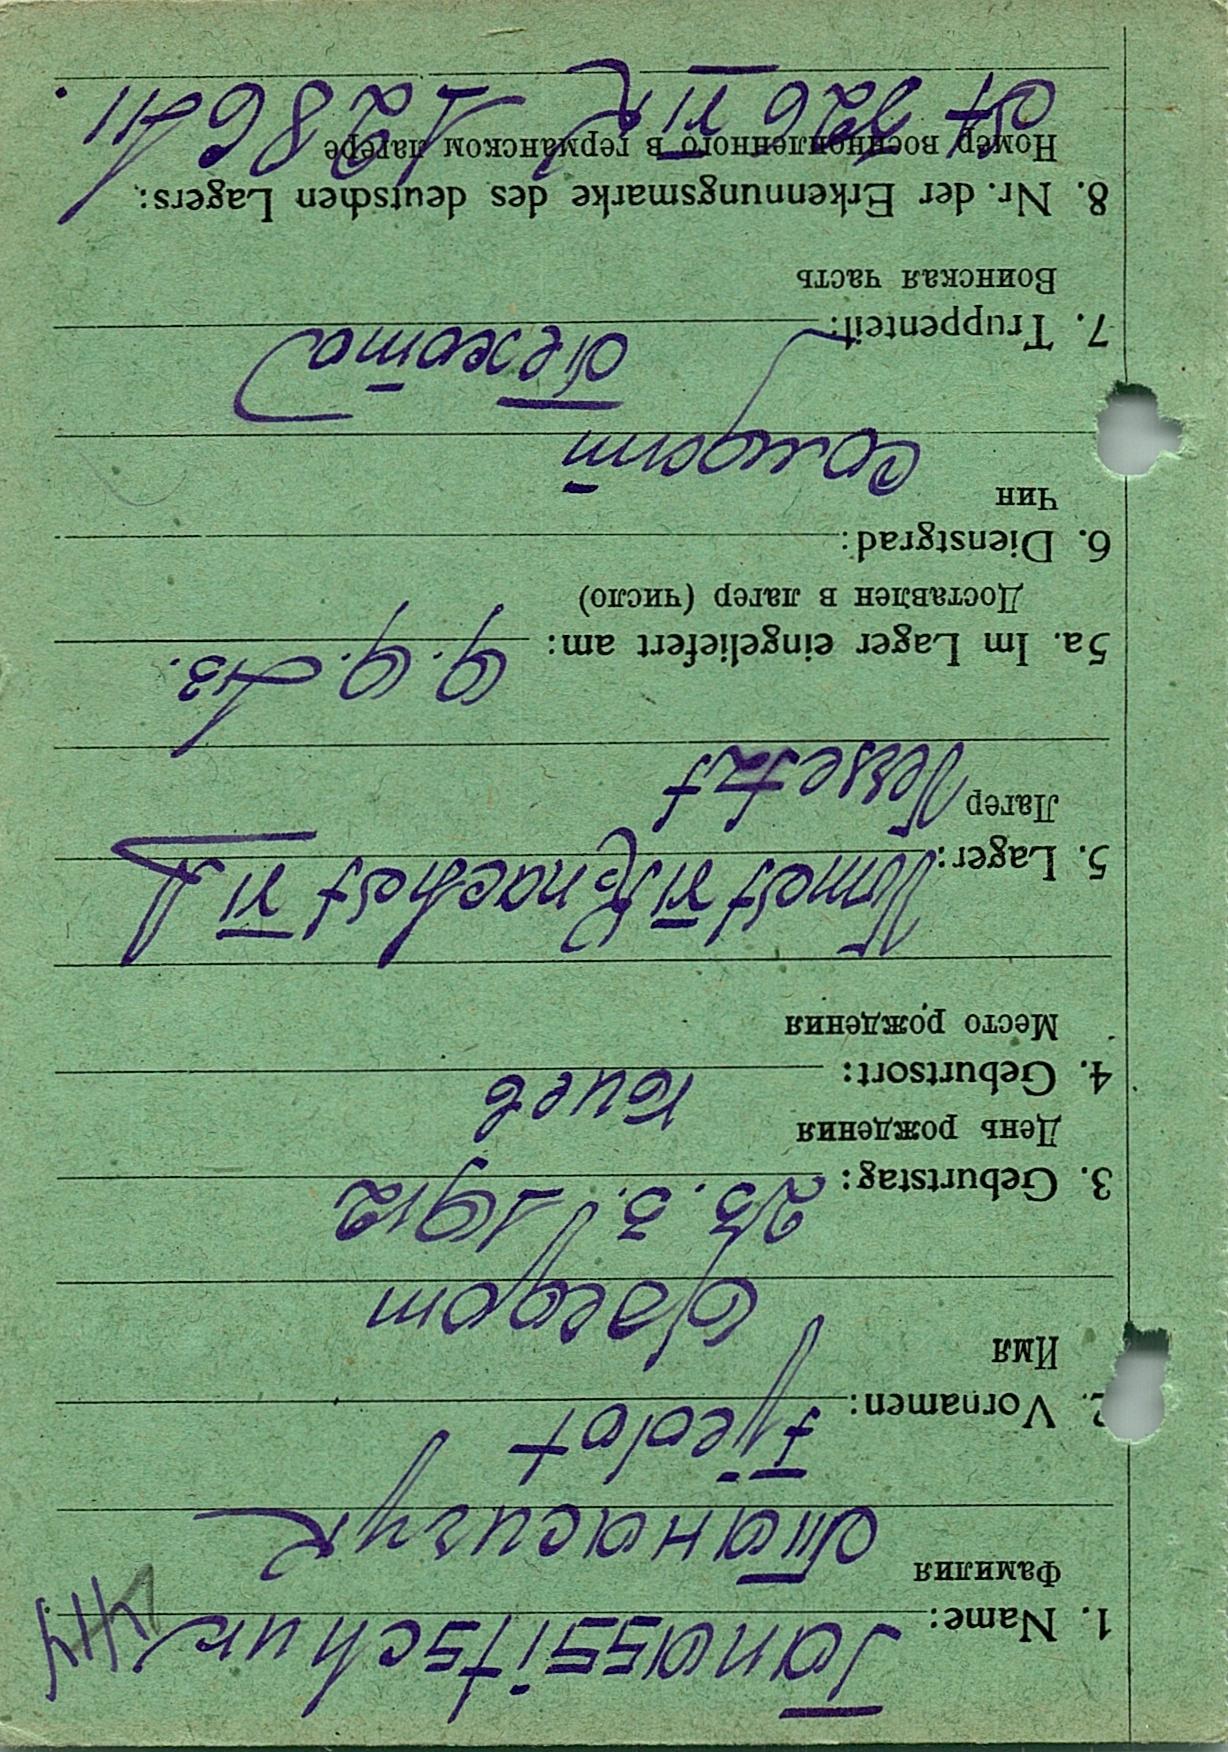 1. Name: Tanassitschuk
Фамилия
Танасичук
2. Vornamen: Fjedot
Имя
Федот
3. Geburtstag: 25.5.1912
День рождения
4. Geburtsort: Киев
Место рождения
5. Lager:
Лагер
5a. Im Lager eingeliefert am: 9.9.43.
Доставлен в лагер (число)
6. Dienstgrad:
Чин
солдат
7. Truppenteil: пехота
Воинская часть
8. Nr. der Erkennungsmarke des deutschen Lagers:
Номер военнопленного в германском лагере
326 VI K